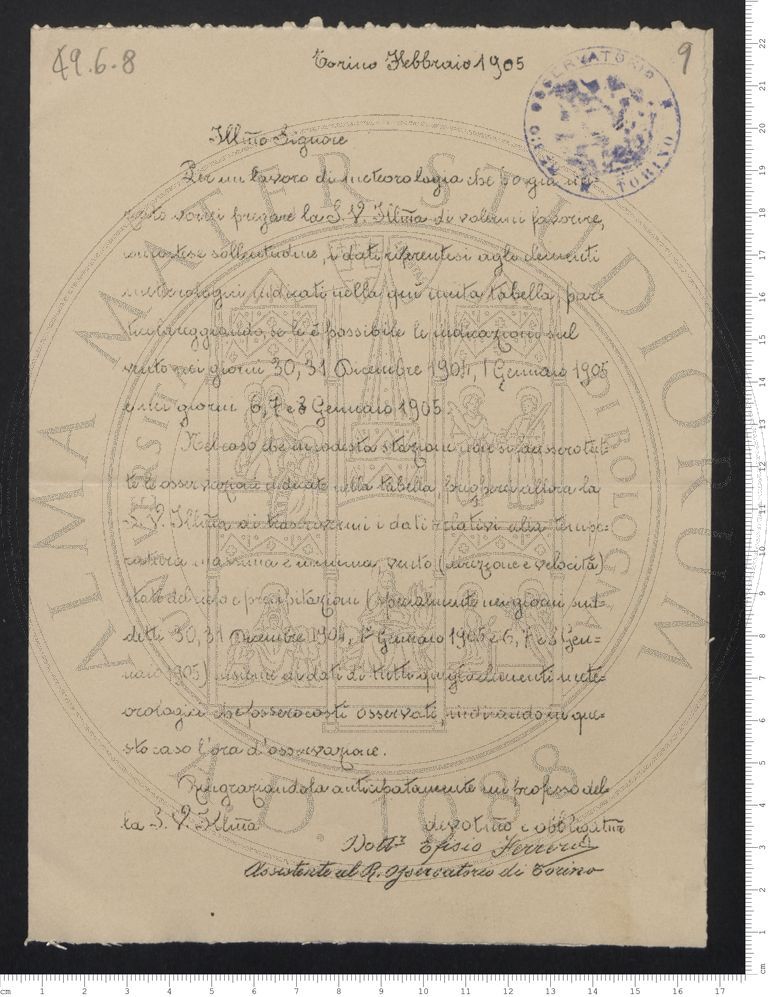 49.6.8
9
Torino Febbraio 1905
REGIO OSSERVATORIO
TORINO
Illm̃o Signore
Per un lavoro di meteorologia che ho già
vorrei pregare la S. V. Illm̃a di volermi favorire,
con cortese sollecitudine, i dati riferentisi agli elementi
meteorologici indicati nella qui unita tabella, par=
ticolareggiando, se le è possibile le indicazioni sul
vento nei giorni 30, 31 Dicembre 1904, 1 Gennaio 1905
e nei giorni 6, 7 e 8 Gennaio 1905.
Nel caso che in codesta stazione non si facessero tut=
te le osservazioni indicate nella tabella, pregherei allora la
S. V. Illm̃a di trascrivermi i dati relativi alla tempe=
ratura massima e minima, vento (direzione e velocità)
stato del cielo e precipitazioni (specialmente nei giorni sud=
detti 30, 31 Dicembre 1904, 1º Gennaio 1905 e 6, 7 e 8 Gen=
naio 1905) insieme ai dati di tutti quegli elementi mete=
orologici che fossero costì osservati, indicando in que=
sto caso l'ora d'osservazione.
Ringraziandola anticipatamente mi professo del=
la S. V. Illm̃a
devotm̃o e obbligatm̃o
Dott.r Efisio Ferrero
Assistente al R. Osservatorio di Torino
ALMA MATER STUDIORUM
A.D. 1088